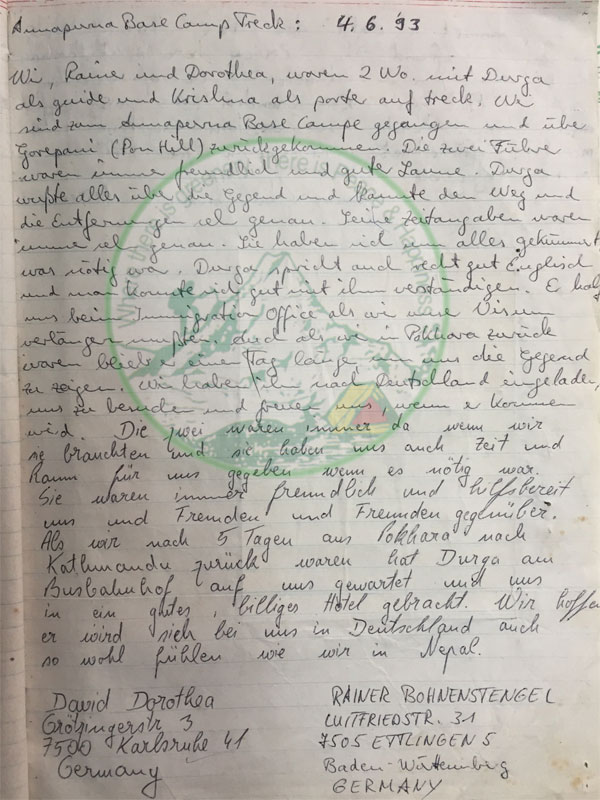 Annaperna Base Camp Treck: 4.6.'93
Wir, Rainer und Dorothea, waren 2 Wo. mit Durga
als guide und Krishna als porter auf treck. Wir
sind zum Annaperna Base Campe gegangen und über
Gorepani (Pon Hill) zurückgekommen. Die zwei Führer
waren immer freundlich und guter Laune. Durga
wußte alles über die Gegend und kannte den Weg und
die Entfernungen sehr genau. Seine Zeitangaben waren
immer sehr genau. Sie haben sich um alles gekümmert
was nötig war. Durga spricht auch recht gut Englisch
und man konnte sich gut mit ihm verständigen. Er half
uns beim Immigration Office als wir unser Visum
verlängern mußten. Auch als wir in Pokhara zurück
waren blieb er einen Tag länger um uns die Gegend
zu zeigen. Wir haben ihn nach Deutschland eingeladen,
uns zu besuchen und freuen uns, wenn er kommen
wird. Die zwei waren immer da wenn wir
sie brauchten und sie haben uns auch Zeit und
Raum für uns gegeben wenn es nötig war.
Sie waren immer freundlich und hilfsbereit
uns und Fremden und Freunden gegenüber.
Als wir nach 5 Tagen aus Pokhara nach
Kathmandu zurück waren hat Durga am
Busbahnhof auf uns gewartet und uns
in ein gutes, billiges Hotel gebracht. Wir hoffen
er wird sich bei uns in Deutschland auch
so wohl fühlen wie wir in Nepal.
David Dorothea
Grötzingerstr 3
7500 Karlsruhe 41
Germany
RAINER BOHNENSTENGEL
LUITFRIEDSTR. 31
7505 ETTLINGEN 5
Baden-Württemberg
GERMANY